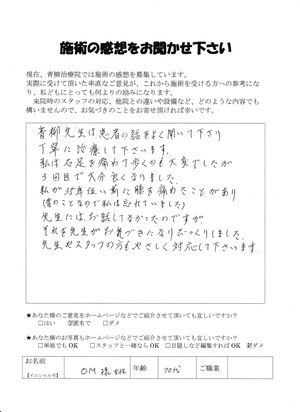 施術の感想をお聞かせ下さい
現在、青柳治療院では施術の感想を募集しています。
実際に受けて頂いた率直なご意見が、これから施術を受ける方への参考にな
り、私どもにとっても何よりの励みになります。
来院時のスタッフの対応、他院との違いや設備など、どのような内容でも
構いませんので、お気づきのことをお寄せ頂ければ幸いです。
青柳先生は患者の話をよく聞いて下さり
丁寧に治療して下さいます。
私は右足を痛めて歩くのも大変でしたが
3回目で大分良くなりました。
私が35年位い前に膝を痛めたことがあり
(昔のことなので私は忘れていました)
先生にはお話してなかったのですが
それを先生がお気づきになりびっくりしました。
先生やスタッフの方もやさしく対応して下さいます
★あなた様のご意見をホームページなどでご紹介させて頂いても宜しいですか？
□はい ☑匿名で □ダメ
★あなた様のお写真もホームページなどでご紹介させて頂いても宜しいですか？
□単独でもOK □スタッフと一緒ならOK □目隠しなど編集すればOK ☑ダメ
お名前
【イニシャル可】 OM様 女性 年齢 70代 ご職業